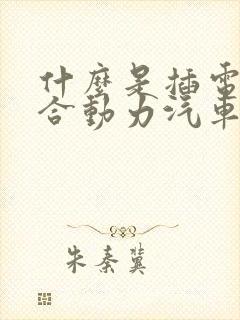 什麼是插電
合動力汽車
朱秦冀